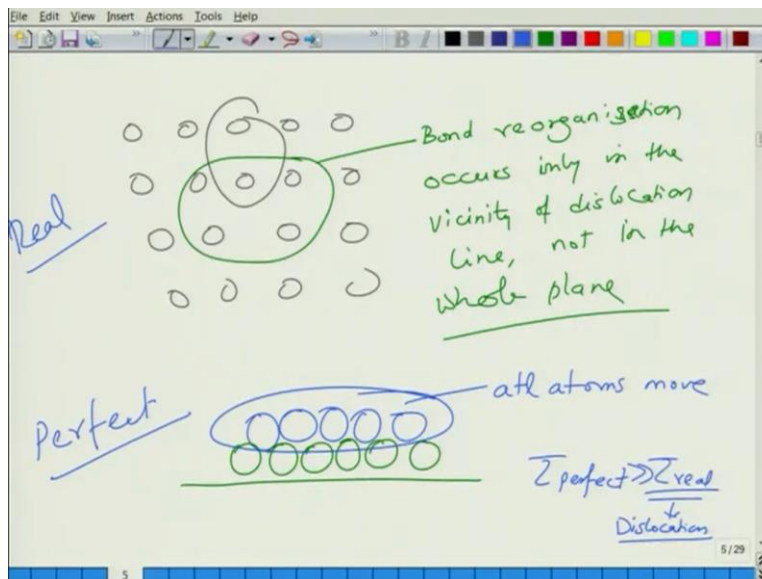 File Edit View Insert Actions Tools Help
B I
Real
Bond reorganisation
occurs inly in the
vicinity of dislocation
line, not in the
whole plane
Perfect
atl atoms move
τ perfect >> τ real
↓
Dislocation
5/29
5